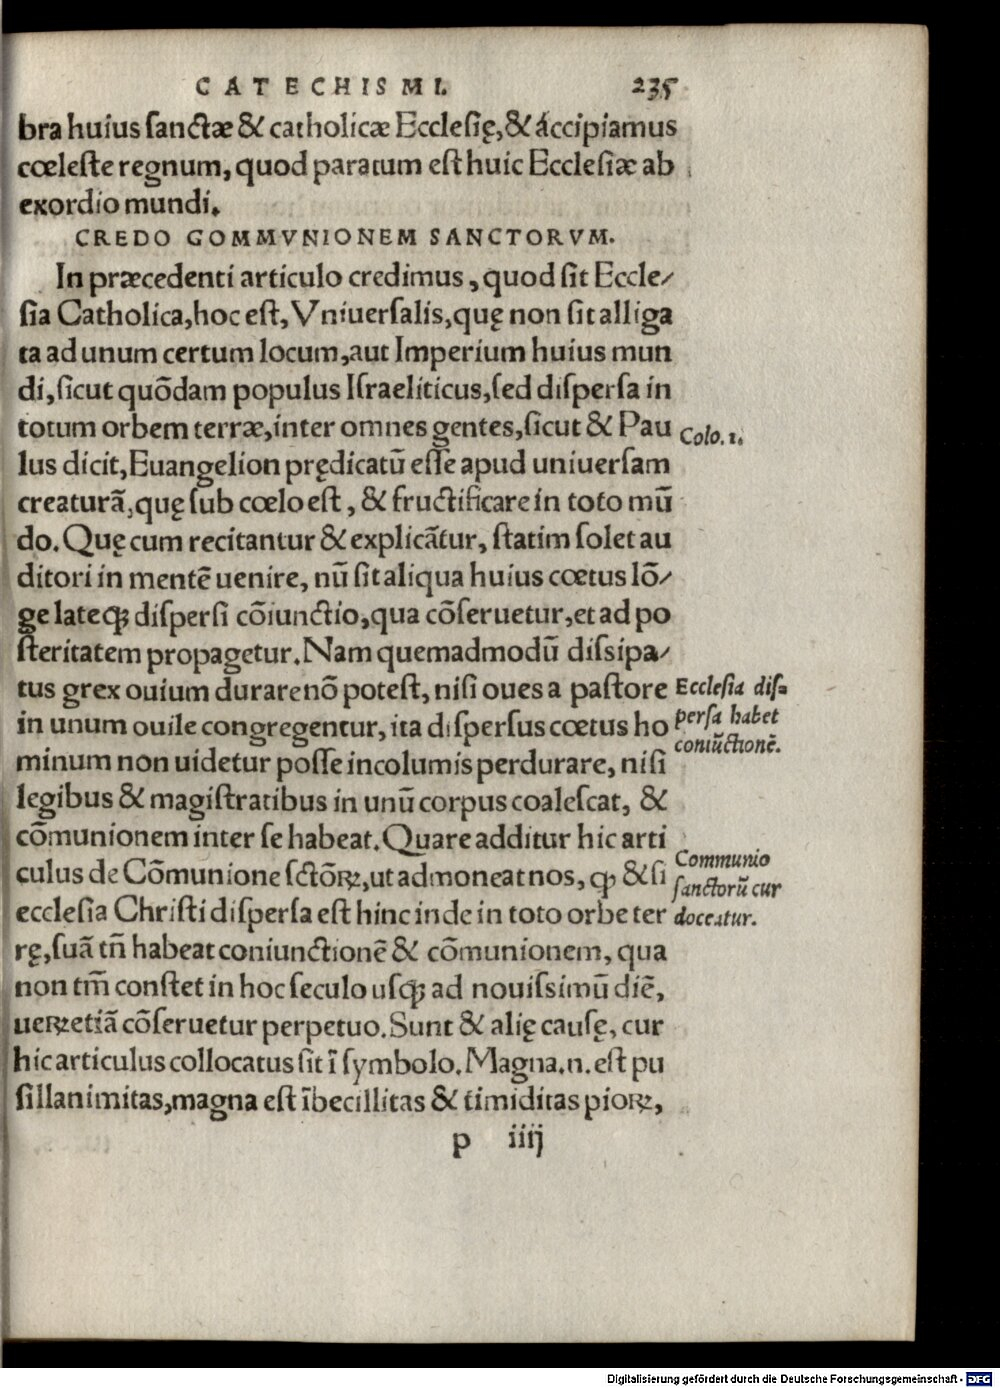 CATECHISMI. 235
bra huius sanctæ & catholicæ Ecclesię, & áccipiamus
cœleste regnum, quod paratum est huic Ecclesiæ ab
exordio mundi.
CREDO GOMMVNIONEM SANCTORVM.
In præcedenti articulo credimus, quod sit Eccle/
sia Catholica, hoc est, Vniuersalis, quę non sit alliga
ta ad unum certum locum, aut Imperium huius mun
di, sicut quōdam populus Israeliticus, sed dispersa in
totum orbem terræ, inter omnes gentes, sicut & Pau
Colo. 1.
lus dicit, Euangelion prędicatū esse apud uniuersam
creaturā, quę sub cœlo est, & fructificare in toto mū
do. Quę cum recitantur & explicātur, statim solet au
ditori in mentē uenire, nū sit aliqua huius cœtus lō/
ge lateqꝫ dispersi cōiunctio, qua cōseruetur, et ad po
steritatem propagetur. Nam quemadmodū dissipa/
tus grex ouium durare nō potest, nisi oues a pastore
in unum ouile congregentur, ita dispersus cœtus ho
Ecclesia dis-
persa habet
coniūctionē.
minum non uidetur posse incolumis perdurare, nisi
legibus & magistratibus in unū corpus coalescat, &
cōmunionem inter se habeat. Quare additur hic arti
culus de Cōmunione sctōꝝ, ut admoneat nos, ꝙ & si
ecclesia Christi dispersa est hinc inde in toto orbe ter
Communio
sanctorū cur
doceatur.
rę, suā tñ habeat coniunctionē & cōmunionem, qua
non tm̄ constet in hoc seculo usqꝫ ad nouissimū diē,
ueꝝ etiā cōseruetur perpetuo. Sunt & alię causę, cur
hic articulus collocatus sit ī symbolo. Magna .n. est pu
sillanimitas, magna est ībecillitas & timiditas pioꝝ,
p iiij
Digitalisierung gefördert durch die Deutsche Forschungsgemeinschaft - DFG